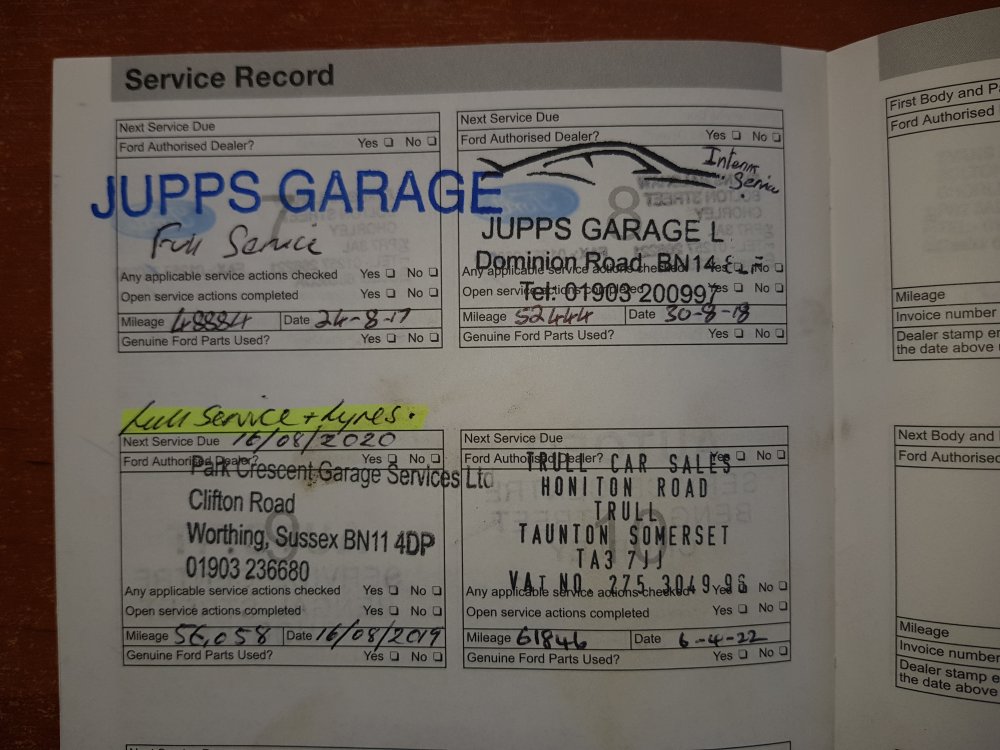 Service Record
Next Service Due
Ford Authorised Dealer? Yes No
JUPPS GARAGE
Full Service
7
Any applicable service actions checked Yes No
Open service actions completed Yes No
Mileage 48884 Date 24-8-17
Genuine Ford Parts Used? Yes No
Next Service Due
Ford Authorised Dealer? Yes No
Interim
Service
8
JUPPS GARAGE L
Dominion Road, BN14
Any applicable service actions checked Yes No
Open service actions completed Yes No
Tel: 01903 200997
Mileage 52444 Date 30-8-18
Genuine Ford Parts Used? Yes No
Full Service + tyres.
Next Service Due 16/08/2020
Ford Authorised Dealer? Yes No
Park Crescent Garage Services Ltd
Clifton Road
Worthing, Sussex BN11 4DP
01903 236680
9
Any applicable service actions checked Yes No
Open service actions completed Yes No
Mileage 56,058 Date 16/08/2019
Genuine Ford Parts Used? Yes No
Next Service Due
Ford Authorised Dealer? Yes No
TRULL CAR SALES
HONITON ROAD
TRULL
TAUNTON SOMERSET
TA3 7JJ
VAT NO. 275 3049 96
10
Any applicable service actions checked Yes No
Open service actions completed Yes No
Mileage 61846 Date 6-4-22
Genuine Ford Parts Used? Yes No
Next Service Due
First Body and
Ford Authorised
Mileage
Invoice number
Dealer stamp
the date above
Next Body and
Ford Authorised
Mileage
Invoice number
Dealer stamp
the date above